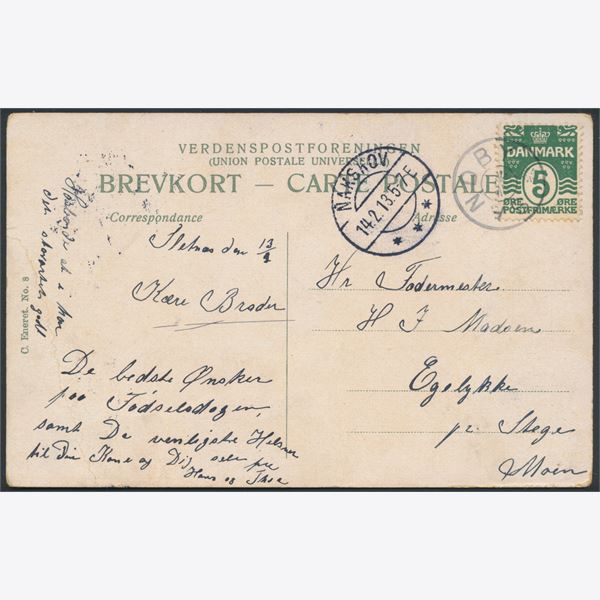 VERDENSPOSTFORENINGEN
(UNION POSTALE UNIVERSE
BREVKORT — CARTE POSTALE
Correspondance
Adresse
NAKSKOV
14.2.13.5-7E
DANMARK
5
ØRE ØRE
POSTFRIMÆRKE
C. Eneret. No. 8
den 13/2
Kære Broder
De bedste Ønsker
paa Fødselsdagen,
samt De venligste Hilsner
til Din Kone og Dig selv fra
Hans og
at i har
det godt
Hr Fodermester
H J Madsen
Egelykke
pr. Stege
Møen